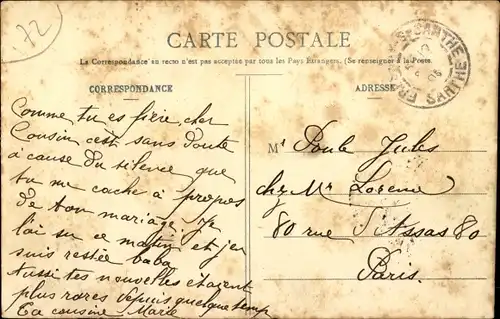 72
CARTE POSTALE
La Correspondance au recto n'est pas acceptée par tous les Pays Étrangers. (Se renseigner à la Poste.
CORRESPONDANCE
ADRESSE
SARTHE
Comme tu es fière, cher
Cousin c'est sans doute
à cause du silence que
tu me cache à propos
de ton mariage. Je
l'ai su ce matin et j'en
suis restée baba
aussi tes nouvelles étaient
plus rares depuis quelque temps
Ta cousine Marie
Mr Poule Jules
chez Mr Lorenne
80 rue d'Assas 80
Paris.